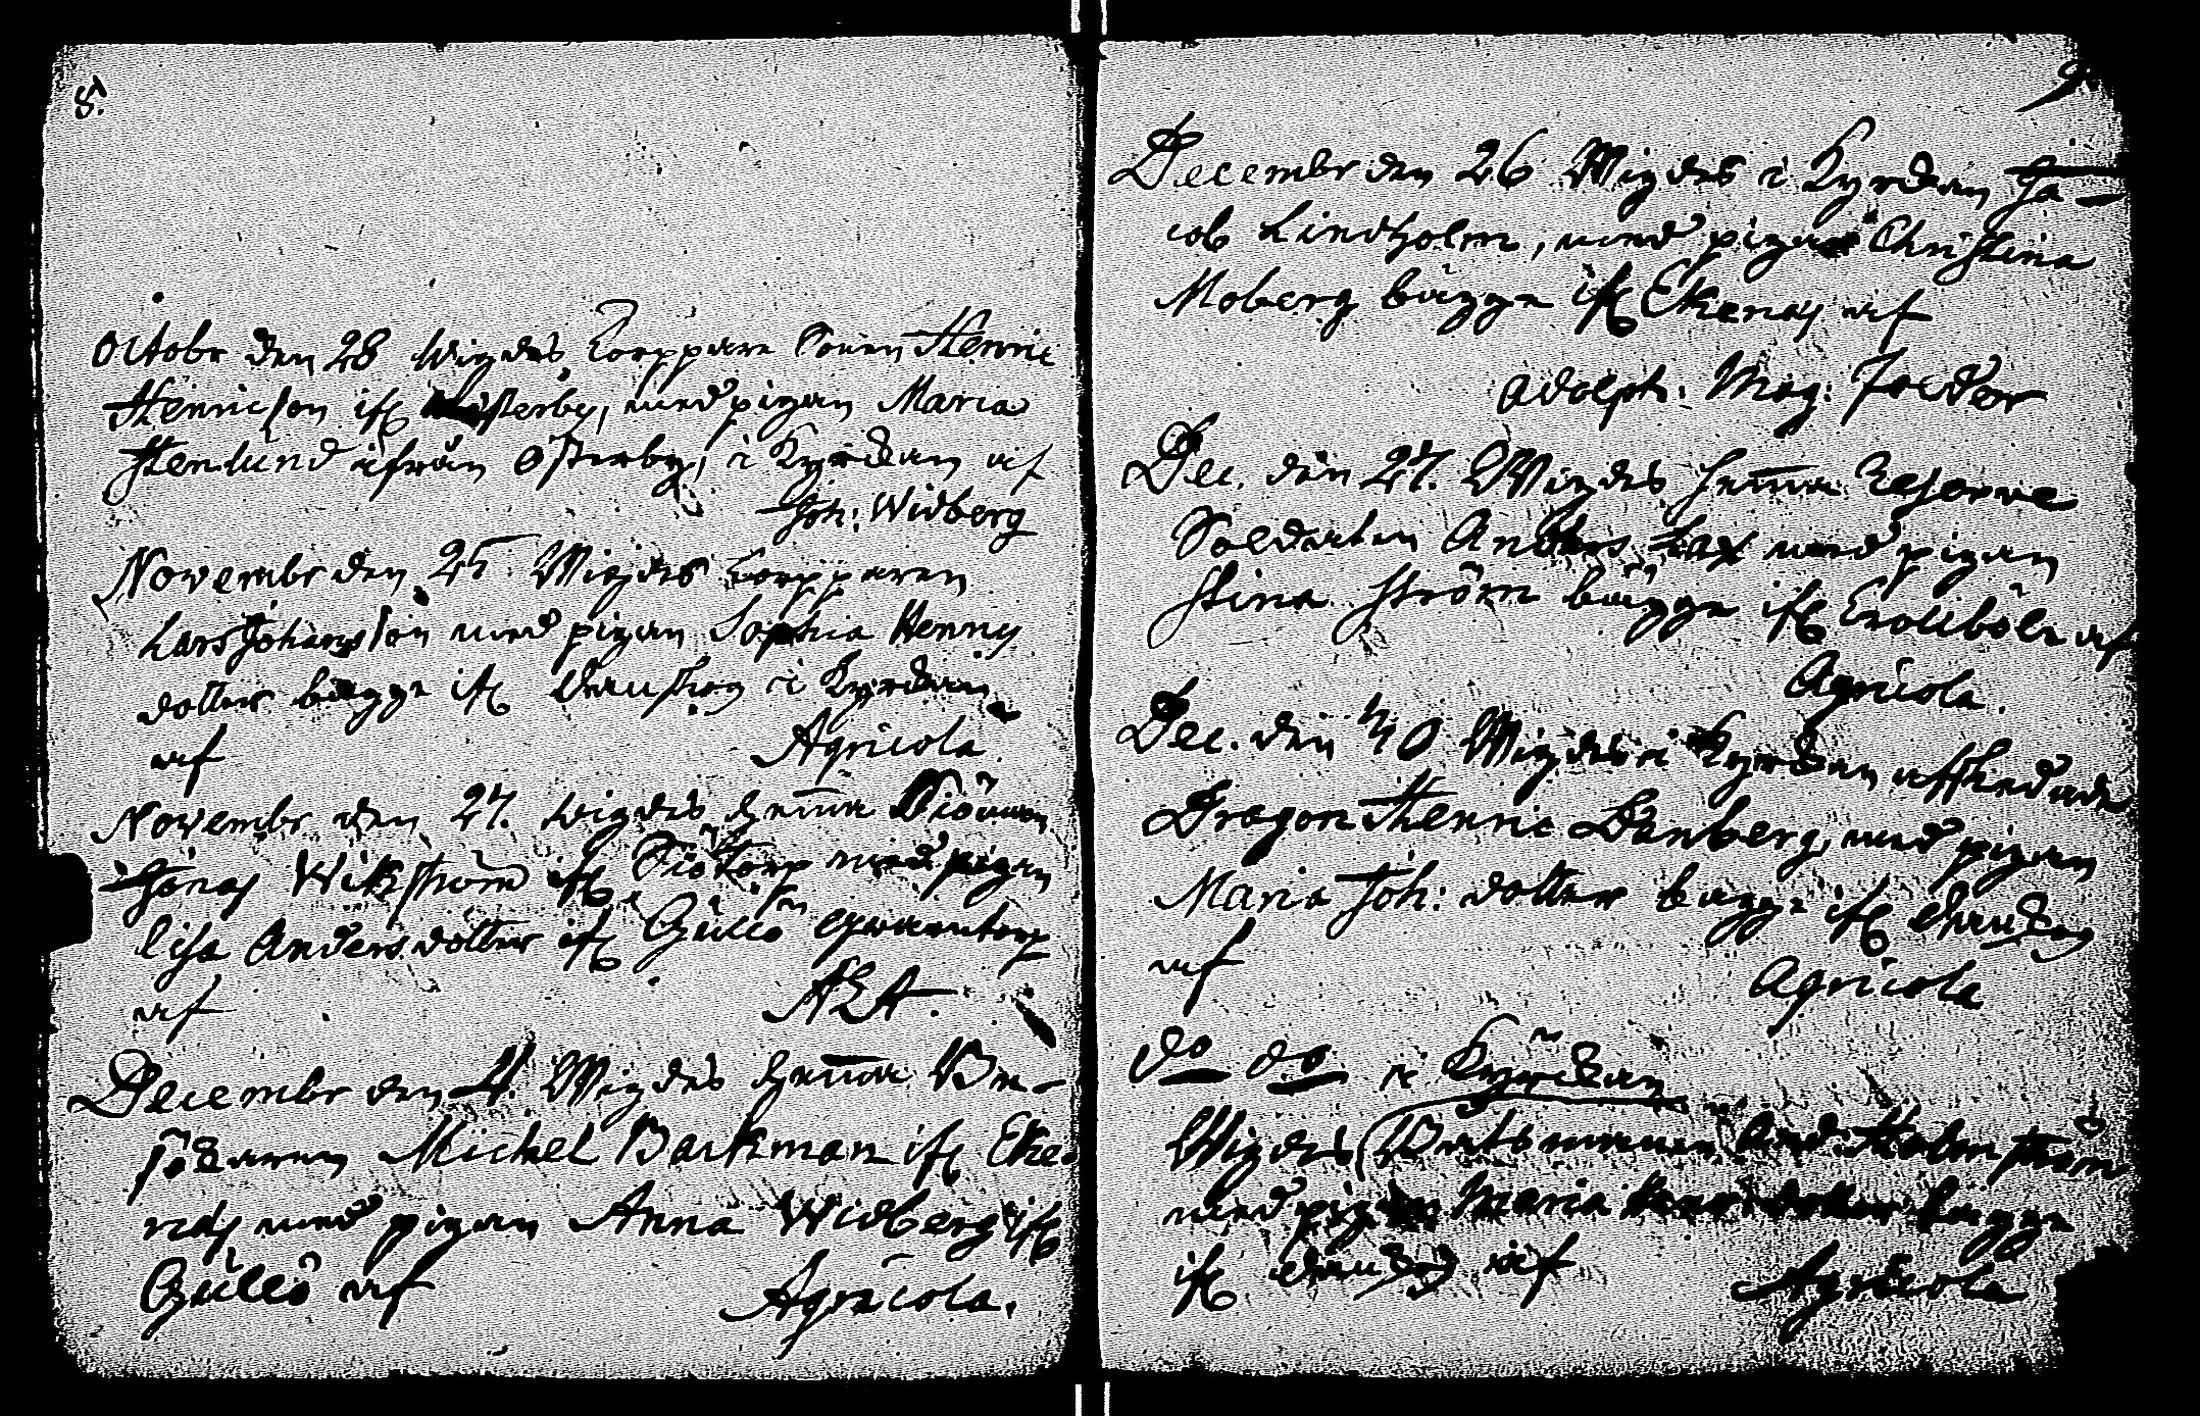 8.
Octobr den 28 Wigdes Torppare Sonen Henric
Henricson ifr Österby, med pigan Maria
Stenlund ifrån Österby, i Kyrckan af
Joh: Widberg
Novembr den 25 Wigdes Torpparen
Lars Johansson med pigan Sophia Henrics
dotter bägge ifr i Kyrckan
af Agricola
Novembr den 27. Wigdes hemma
Jonas Wikström ifr med pigan
Lisa Anders dotter ifr Gullö
af AEA.
Decembr den 4. Wigdes hemma Be-
sökaren Michel Backman ifr Eke-
näs med pigan Anna Widberg ifr
Gullö af Agricola.
9.
Decembr den 26 Wigdes i Kyrckan Ja-
cob Lindholm, med pigan Christina
Moberg bägge ifr Ekenäs af
Adolph: Mag:
Dec. den 27. Wigdes hemma Reserve
Soldaten Anders Lax med pigan
Stina Ström bägge ifr af
Agricola.
Dec. den 30 Wigdes i Kyrckan afskedade
Dragon Henric Danberg, med pigan
Maria Joh: dotter bägge ifr
af Agricola
do do i Kyrckan
Wigdes Båtsmannen And: Holmström
med pigan Maria dotter bägge
ifr af Agricola